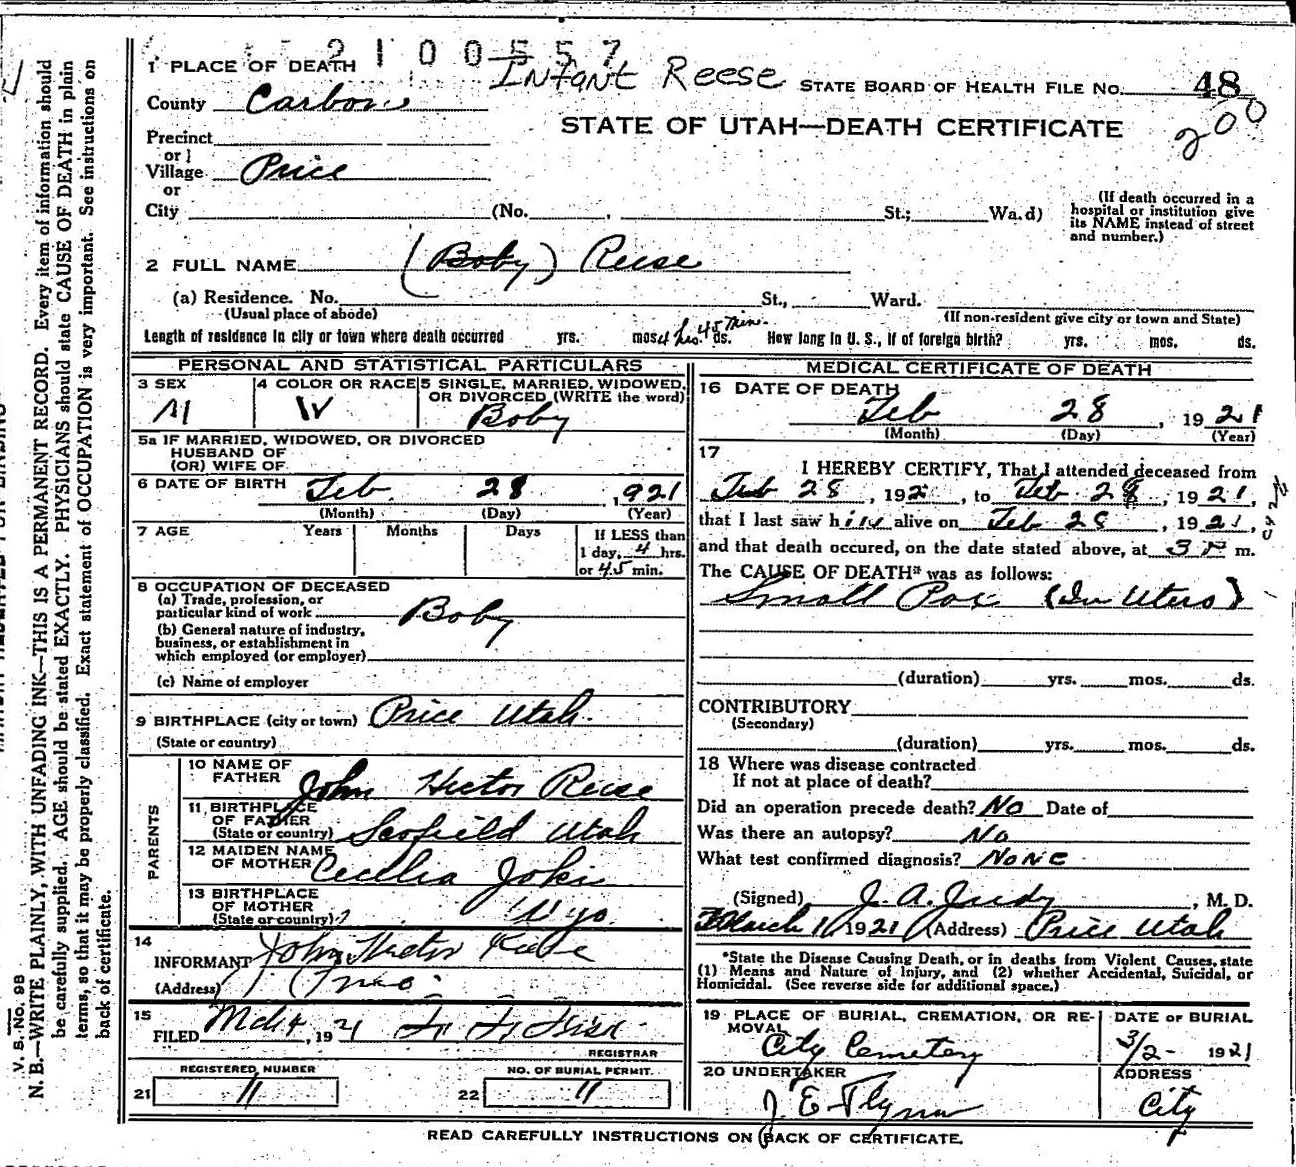 2 1 0 0 5 5 7
Infant Reese
STATE BOARD OF HEALTH FILE NO. 48
200
STATE OF UTAH—DEATH CERTIFICATE
1 PLACE OF DEATH
County Carbon
Precinct
or
Village Price
or
City (No. , St.; Wa.d)
(If death occurred in a
hospital or institution give
its NAME instead of street
and number.)
2 FULL NAME (Boby) Reese
(a) Residence. No. St., Ward.
(Usual place of abode) (If non-resident give city or town and State)
Length of residence in city or town where death occurred yrs. mos. 4 hrs. 45 min. ds. How long in U. S., if of foreign birth? yrs. mos. ds.
PERSONAL AND STATISTICAL PARTICULARS
3 SEX M
4 COLOR OR RACE W
5 SINGLE, MARRIED, WIDOWED,
OR DIVORCED (WRITE the word)
Boby
5a IF MARRIED, WIDOWED, OR DIVORCED
HUSBAND OF
(OR) WIFE OF
6 DATE OF BIRTH Feb. 28, 921
(Month) (Day) (Year)
7 AGE Years Months Days If LESS than
1 day, 4 hrs.
or 45 min.
8 OCCUPATION OF DECEASED
(a) Trade, profession, or
particular kind of work Boby
(b) General nature of industry,
business, or establishment in
which employed (or employer)
(c) Name of employer
9 BIRTHPLACE (city or town) Price Utah.
(State or country)
PARENTS
10 NAME OF
FATHER John Hector Reese
11 BIRTHPLACE
OF FATHER
(State or country) Scofield Utah
12 MAIDEN NAME
OF MOTHER Cecelia
13 BIRTHPLACE
OF MOTHER
(State or country) Wyo.
14
INFORMANT John Hector Reese
(Address) Price
15
FILED Mch 4, 1921
REGISTRAR
REGISTERED NUMBER
21 11
NO. OF BURIAL PERMIT.
22 11
MEDICAL CERTIFICATE OF DEATH
16 DATE OF DEATH
Feb 28, 1921
(Month) (Day) (Year)
17
I HEREBY CERTIFY, That I attended deceased from
Feb 28, 192 , to Feb 28, 1921,
that I last saw him alive on Feb 28, 1921,
and that death occured, on the date stated above, at 3 P m.
The CAUSE OF DEATH* was as follows:
Small Pox (In Utero)
(duration) yrs. mos. ds.
CONTRIBUTORY
(Secondary)
(duration) yrs. mos. ds.
18 Where was disease contracted
If not at place of death?
Did an operation precede death? No Date of
Was there an autopsy? No
What test confirmed diagnosis? None
(Signed) J. A. Judy, M. D.
March 1 1921 (Address) Price Utah
*State the Disease Causing Death, or in deaths from Violent Causes, state
(1) Means and Nature of Injury, and (2) whether Accidental, Suicidal, or
Homicidal. (See reverse side for additional space.)
19 PLACE OF BURIAL, CREMATION, OR RE-
MOVAL
City Cemetery
DATE OF BURIAL
3/2- 1921
20 UNDERTAKER
J. E. Flynn
ADDRESS
City
READ CAREFULLY INSTRUCTIONS ON BACK OF CERTIFICATE.
V. S. No. 9B
N. B.—WRITE PLAINLY, WITH UNFADING INK—THIS IS A PERMANENT RECORD. Every item of information should
be carefully supplied. AGE should be stated EXACTLY. PHYSICIANS should state CAUSE OF DEATH in plain
terms, so that it may be properly classified. Exact statement of OCCUPATION is very important. See instructions on
back of certificate.